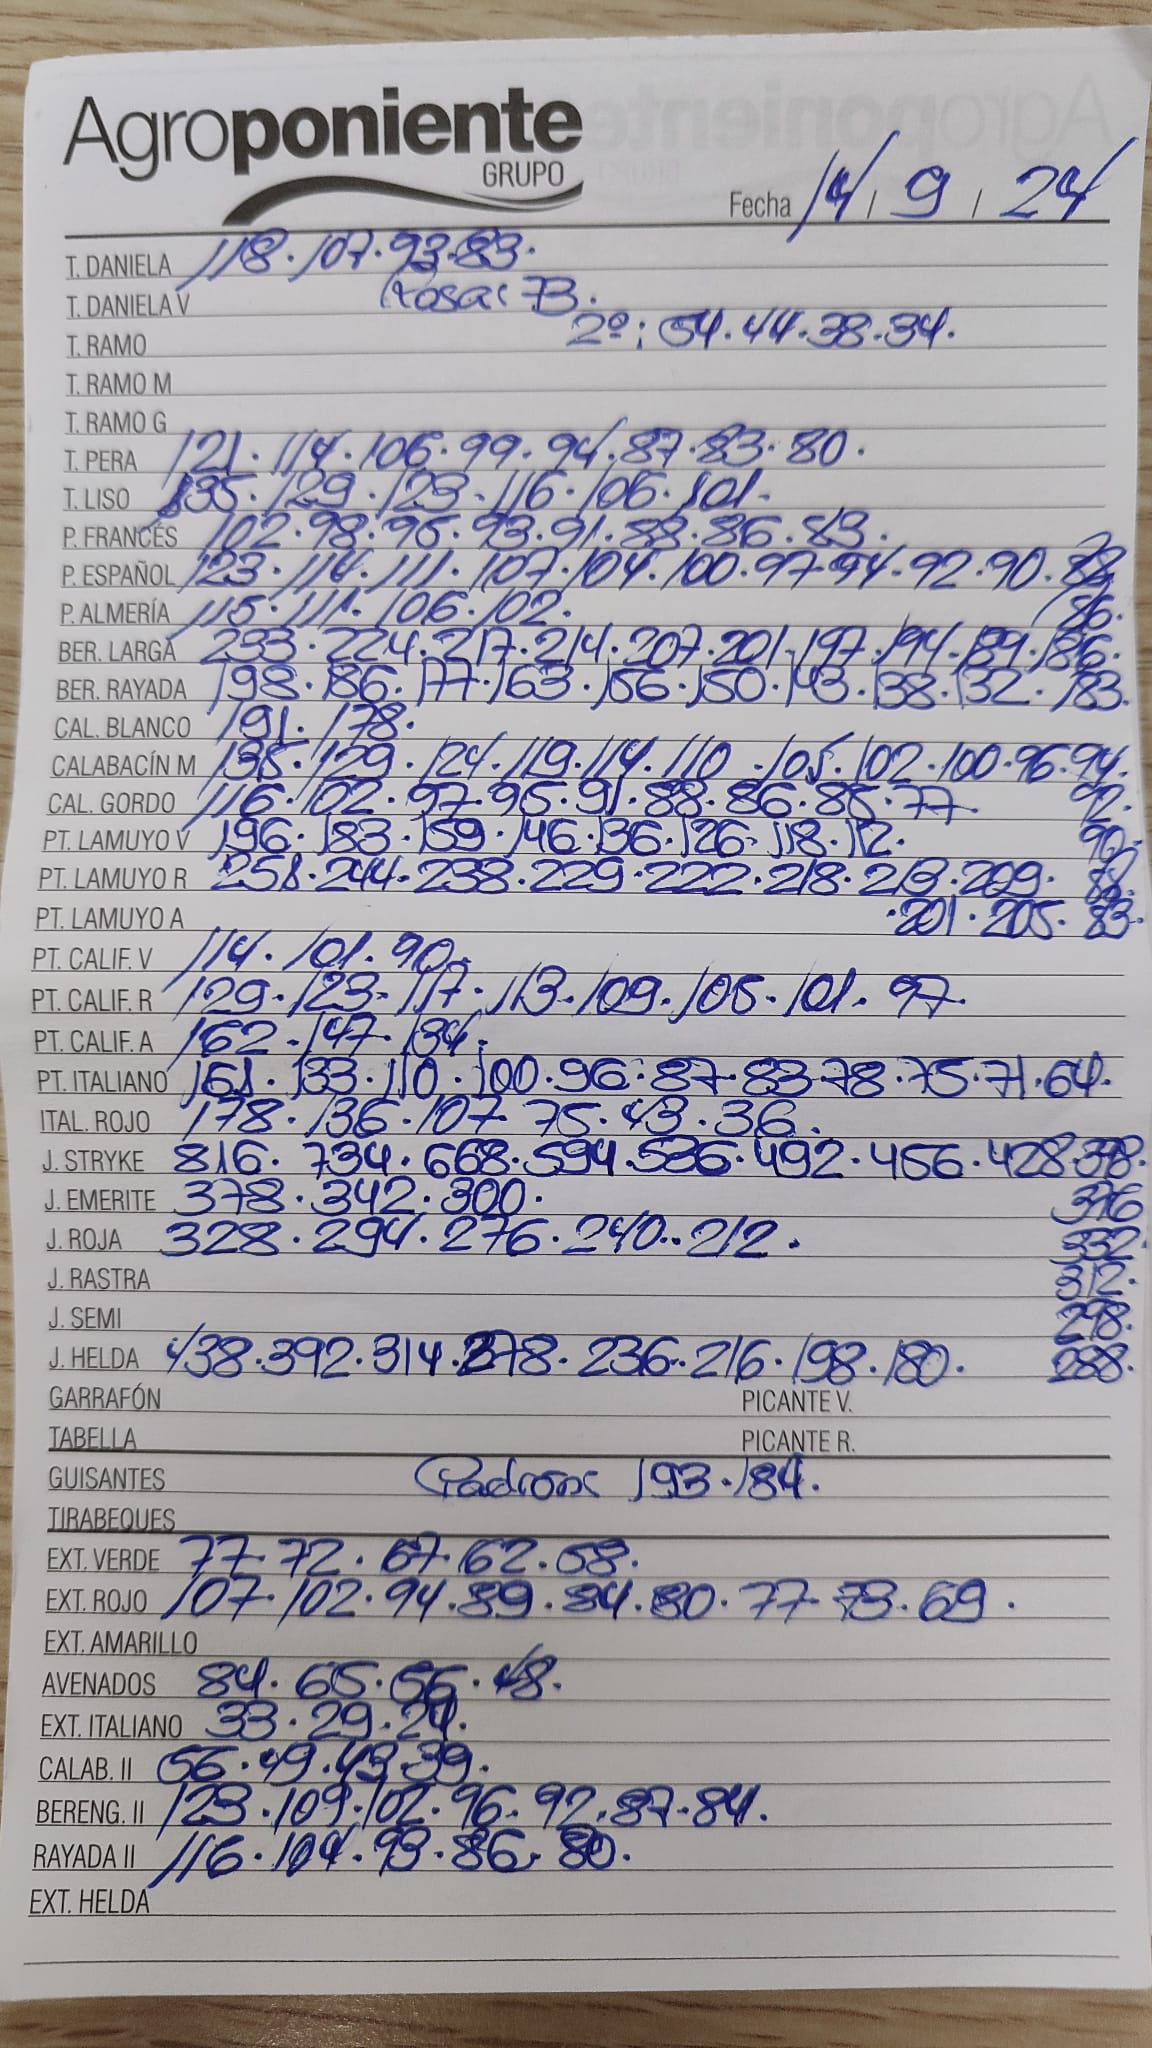 Agroponiente
GRUPO
Fecha 14 / 9 / 24
T. DANIELA 118. 107. 93. 83.
T. DANIELA V Rosa: 73.
T. RAMO 2º: 54. 44. 38. 34.
T. RAMO M
T. RAMO G
T. PERA 121. 114. 106. 99. 94. 87. 83. 80.
T. LISO 135. 129. 123. 116. 106. 101.
P. FRANCÉS 102. 98. 95. 93. 91. 88. 86. 83.
P. ESPAÑOL 123. 114. 111. 107. 104. 100. 97. 94. 92. 90. 88.
P. ALMERÍA 115. 111. 106. 102. 86.
BER. LARGA 233. 224. 217. 214. 207. 201. 197. 194. 189. 186.
BER. RAYADA 198. 186. 177. 163. 156. 150. 143. 138. 132. 183.
CAL. BLANCO 191. 178.
CALABACÍN M 135. 129. 124. 119. 114. 110. 105. 102. 100. 96. 94.
CAL. GORDO 116. 102. 97. 95. 91. 88. 86. 85. 77. 92.
PT. LAMUYO V 196. 183. 159. 146. 136. 126. 118. 112. 90.
PT. LAMUYO R 258. 244. 238. 229. 222. 218. 213. 209.
PT. LAMUYO A . 201. 205. 83.
PT. CALIF. V 114. 101. 90.
PT. CALIF. R 129. 123. 117. 113. 109. 105. 101. 97.
PT. CALIF. A 162. 147. 134.
PT. ITALIANO 161. 133. 110. 100. 96. 87. 83. 78. 75. 71. 64.
ITAL. ROJO 178. 136. 107. 75. 43. 36.
J. STRYKE 816. 734. 668. 594. 536. 492. 456. 428. 398.
J. EMERITE 378. 342. 300.
J. ROJA 328. 294. 276. 240. 212. 332.
J. RASTRA 312.
J. SEMI 298.
J. HELDA 438. 392. 314. 278. 236. 216. 198. 180. 288.
GARRAFÓN PICANTE V.
TABELLA PICANTE R.
GUISANTES Padron: 193. 184.
TIRABEQUES
EXT. VERDE 77. 72. 67. 62. 58.
EXT. ROJO 107. 102. 94. 89. 84. 80. 77. 73. 69.
EXT. AMARILLO
AVENADOS 84. 65. 56. 48.
EXT. ITALIANO 33. 29. 24.
CALAB. II 56. 49. 43. 39.
BERENG. II 123. 109. 102. 96. 92. 87. 84.
RAYADA II 116. 104. 93. 86. 80.
EXT. HELDA